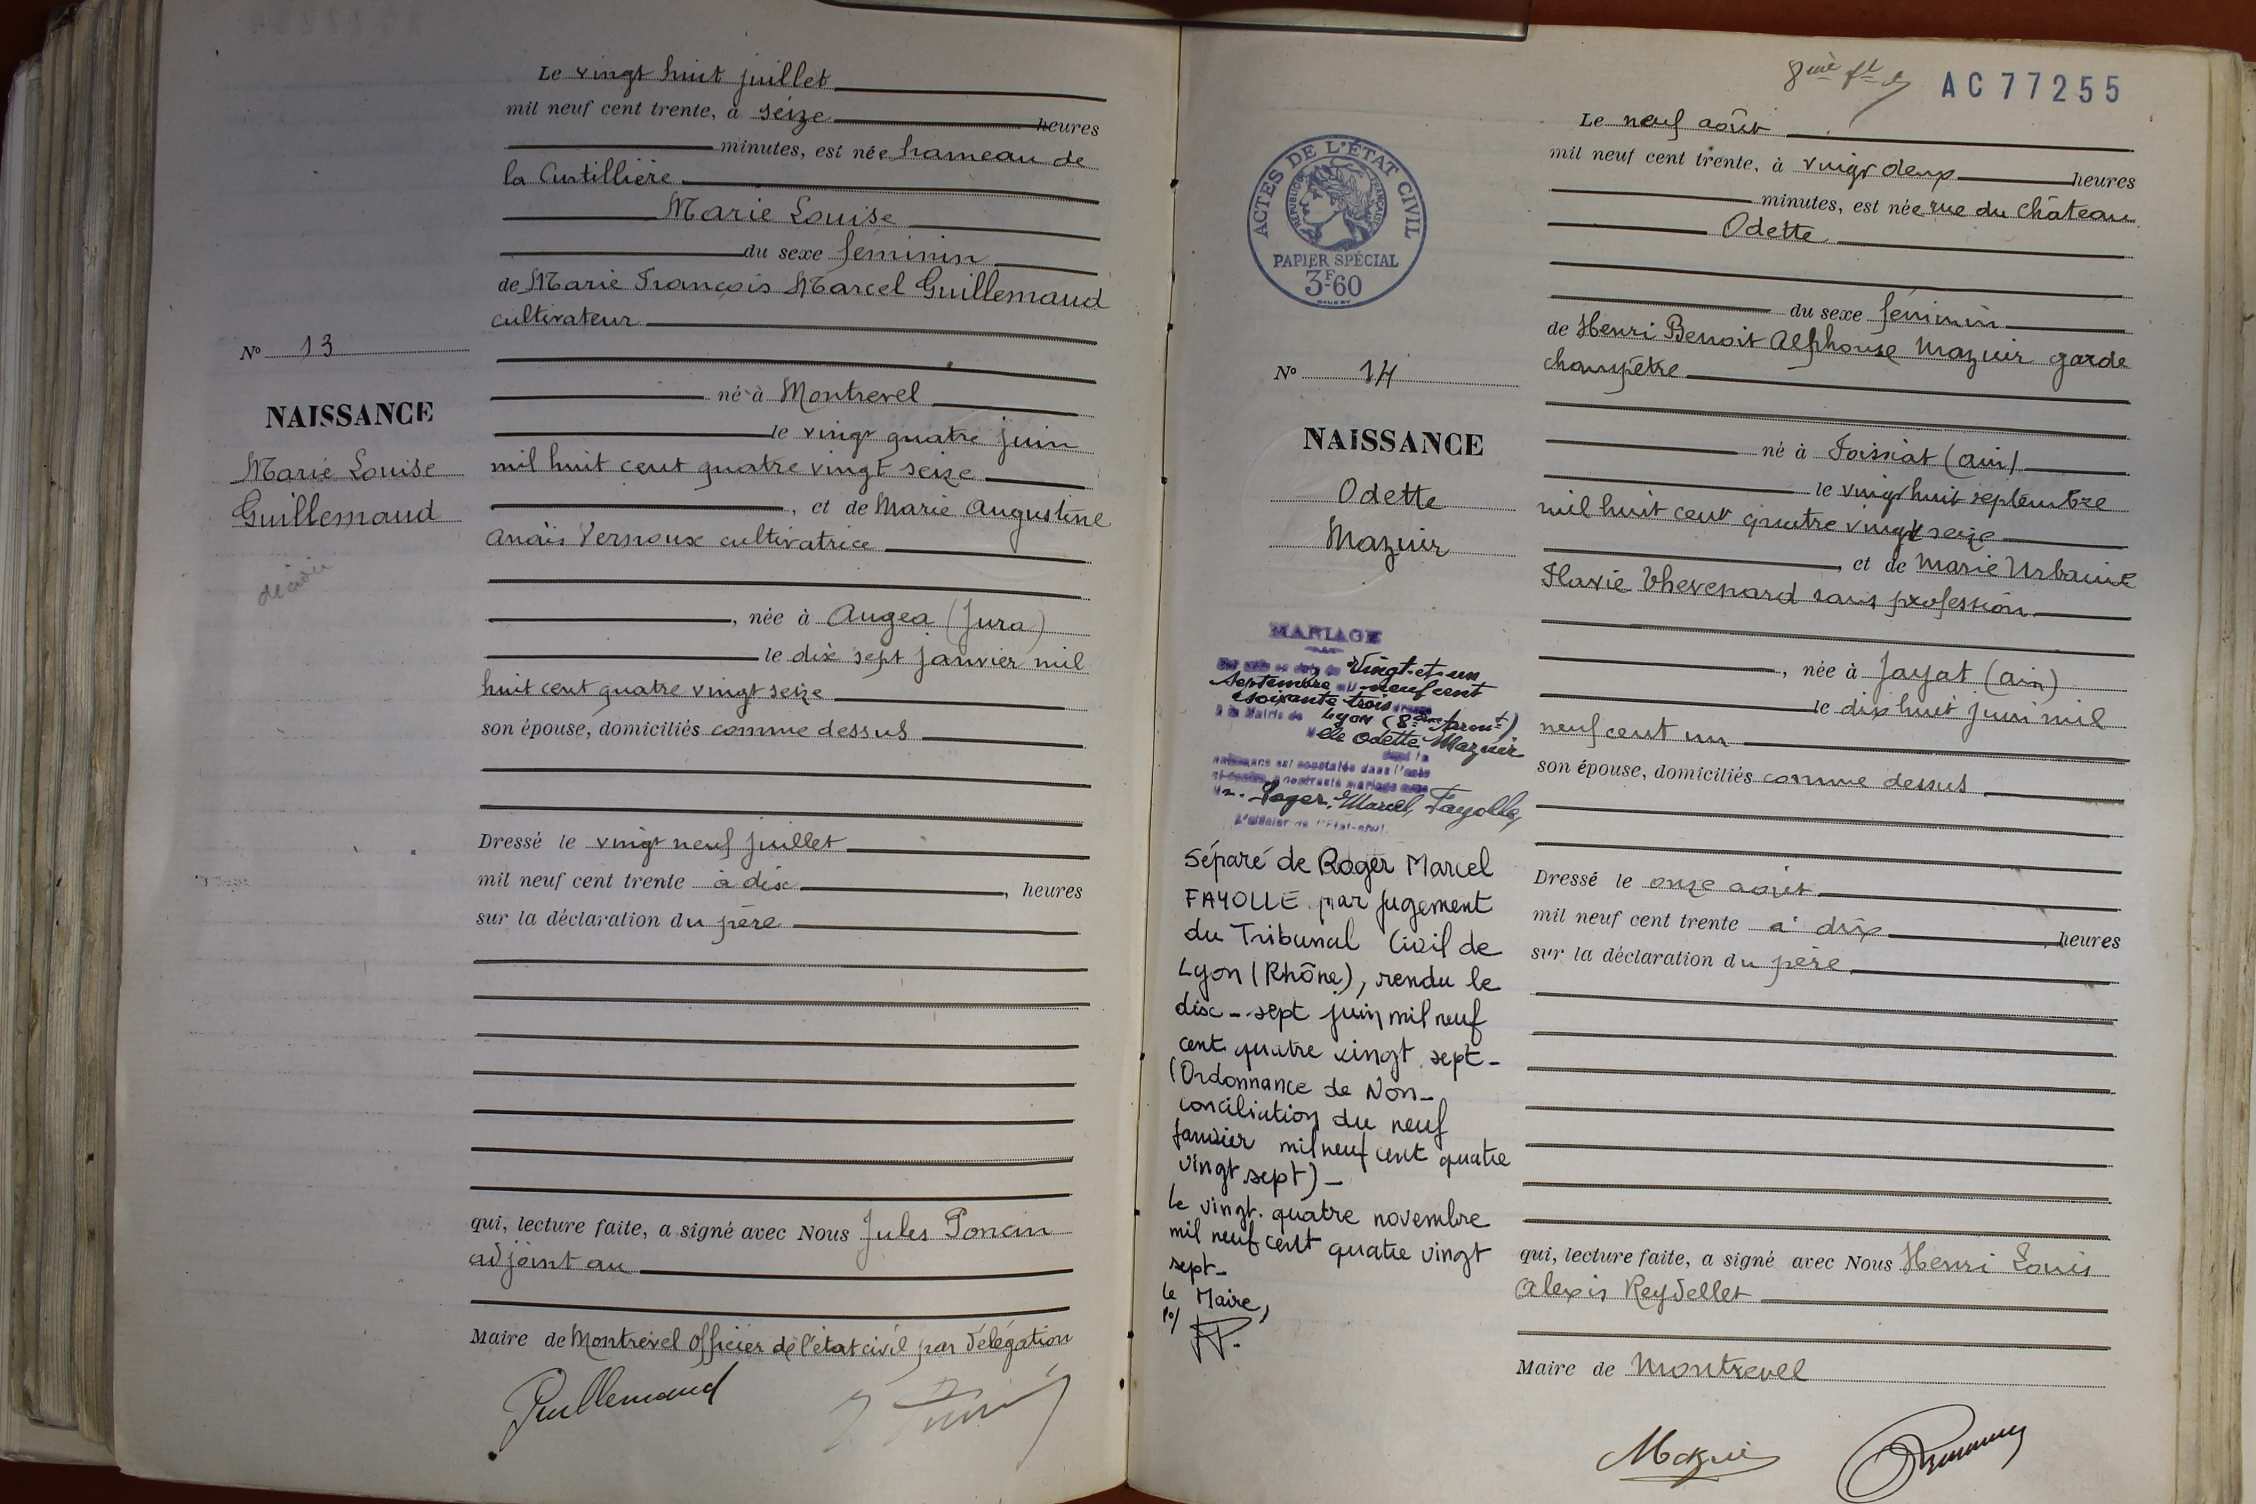 Le vingt huit juillet
mil neuf cent trente, à seize heures
minutes, est née hameau de
la Curtillière
Marie Louise
du sexe féminin
de Marie François Marcel Guillemaud
cultivateur
né à Montrevel
le vingt quatre juin
mil huit cent quatre vingt seize
, et de Marie Augustine
Anaïs Vernoux cultivatrice
, née à Augea (Jura)
le dix sept janvier mil
huit cent quatre vingt seize
son épouse, domiciliés comme dessus
Dressé le vingt neuf juillet
mil neuf cent trente à dix, heures
sur la déclaration du père
qui, lecture faite, a signé avec Nous Jules Poncin
adjoint au
Maire de Montrevel Officier de l'état civil par délégation
Guillemaud
No 13
NAISSANCE
Marie Louise
Guillemaud
AC 77255
ACTES DE L'ÉTAT CIVIL
RÉPUBLIQUE FRANÇAISE
PAPIER SPÉCIAL
3F60
No 14
NAISSANCE
Odette
Mazuir
MARIAGE
vingt-et-un
septembre mil neuf cent
soixante trois
à la Mairie de Lyon (8ème Arront)
Odette Mazuir
dont la
naissance est constatée dans l'acte
ci-contre a contracté mariage avec
M. Roger, Marcel, Fayolle,
L'officier de l'Etat-civil.
Séparé de Roger Marcel
FAYOLLE par jugement
du Tribunal Civil de
Lyon (Rhône), rendu le
dix-sept juin mil neuf
cent quatre vingt sept-
(Ordonnance de Non-
conciliation du neuf
janvier mil neuf cent quatre
vingt sept)-
Le vingt.quatre novembre
mil neuf cent quatre vingt
sept-
Le Maire,
Po/
Le neuf août
mil neuf cent trente, à vingt deux heures
minutes, est née rue du Château
Odette
du sexe féminin
de Henri Benoit Alphonse Mazuir garde
champêtre
né à Foissiat (Ain)
le vingt huit septembre
mil huit cent quatre vingt seize
, et de Marie Urbaine
Flavie Chevenard sans profession
, née à Jayat (Ain)
le dix huit juin mil
neuf cent un
son épouse, domiciliés comme dessus
Dressé le onze août
mil neuf cent trente à dix heures
sur la déclaration du père
qui, lecture faite, a signé avec Nous Henri Louis
Alexis Reydellet
Maire de Montrevel
Mazuir